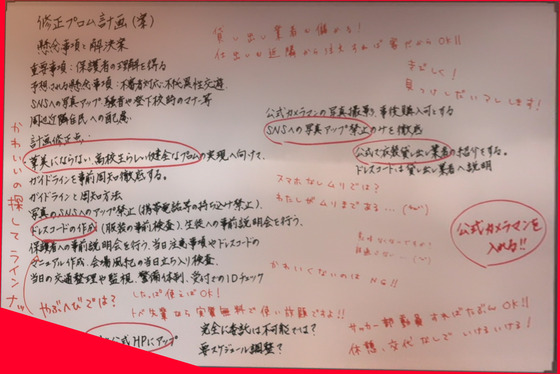 修正プロム計画(案)
懸念事項と解決案
重要事項:保護者の理解を得る
予想される懸念事項:不審者対応・不純異性交遊
SNSへの写真アップ・騒音や登下校時のマナー等
周辺近隣住民への配慮
計画修正点:
華美にならない、高校生らしい健全なプロムの実現へ向けて、
ガイドラインを事前周知徹底する。
ガイドラインと周知方法
写真のSNSへのアップ禁止(携帯電話等の持ち込み禁止)、
ドレスコードの作成(服装の事前検査)、生徒への事前説明会を行う、
保護者への事前説明会を行う、当日注意事項やドレスコードの
マニュアル作成、会場風紀の当日立ち入り検査、
当日の交通整理や監視、警備体制、受付でのIDチェック
公式HPにアップ
貸し出し業者が儲かる!
仕出しも近隣から注文すれば
OK!!
きびしく!
します!
公式カメラマンの写真撮影、事後購入可とする
SNSへの写真アップ禁止のみを徹底
公式で衣装貸し出し業者の紹介をする。
ドレスコードは貸し出し業者へ説明
スマホなしムリでは?
わたしがムリまである…
公式カメラマンを
入れる!!
かわいくないのは NG!!
かわいいの探してラインナップ
やぶへびでは?
したっぱ使えばOK!
実質無料で使い放題ですよ!!
完全に委託は不可能では?
要スケジュール調整?
サッカー部動員すればたぶんOK!!
休憩、交代なしでいけるいける!